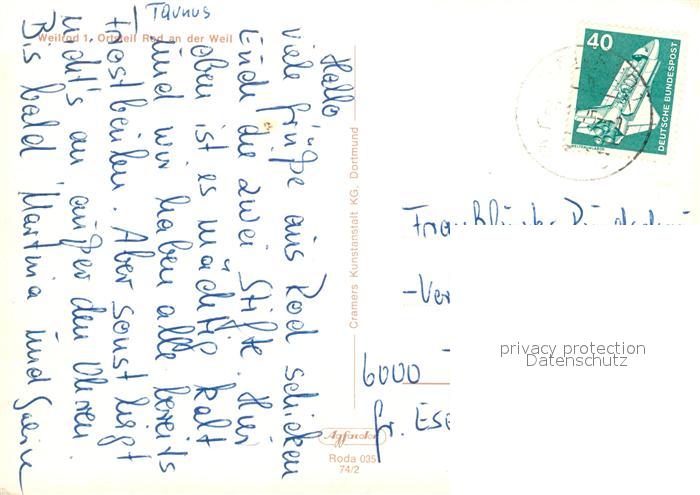 Taunus
Weilrod 1, Ortsteil Rod an der Weil
Hallo
viele Grüße aus Rod schicken
Euch die zwei Stifte. Hier
oben ist es mächtig kalt
und wir haben alle bereits
Frostbeulen. Aber sonst liegt
nicht's an außer den Ohren
Bis bald Martina und
Cramers Kunstanstalt KG, Dortmund
Agfacolor
Roda 035
74/2
40
DEUTSCHE BUNDESPOST
WELTRAUMLABOR
6000
privacy protection
Datenschutz